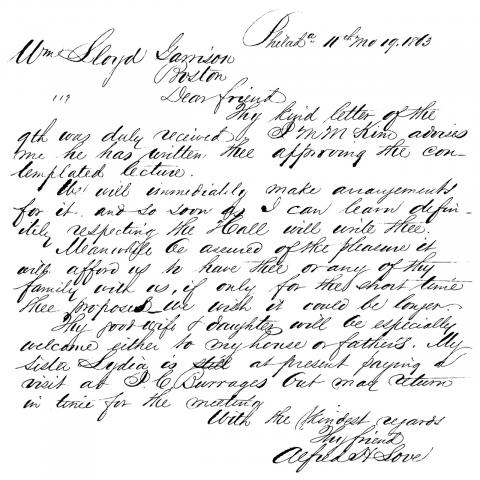 Philada 11th mo 19. 1863
Wm Lloyd Garrison
Boston
Dear friend
Thy kind letter of the
9th was duly received & J M M Kim advises
me he has written thee approving the con-
templated lecture.
We will immediately make arrangements
for it and so soon as I can learn defin-
itely respecting the Hall will write thee.
Meanwhile be assured of the pleasure it
will afford us to have thee or any of thy
family with us, if only for the short time
thee proposed we wish it could be longer.
Thy good wife & daughter will be especially
welcome either to my house or father's. My
sister Lydia is still at present paying a
visit at J. C. Burrages but may return
in time for the meeting
With the kindest regards
Thy friend
Alfred H Love